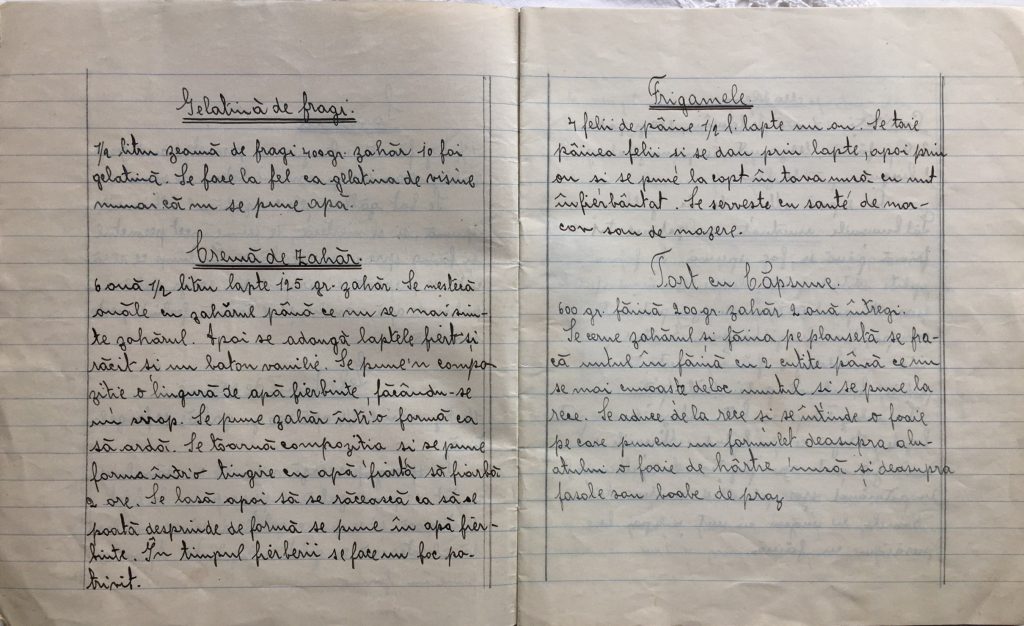 Gelatină de fragi.
1/2 litru zeamă de fragi 400 gr. zahăr 10 foi
gelatină. Se face la fel ca gelatina de visine
numai că nu se pune apă.
Cremă de Zahăr.
6 ouă 1/2 litru lapte 125 gr. zahăr. Se mestică
ouăle cu zahărul până ce nu se mai sim-
te zahărul. Apoi se adaugă laptele fiert si
răcit si un baton vanilie. Se pune'n compo-
zitie o lingură de apă fierbinte, făcându-se
un sirop. Se pune zahăr într'o formă ca
să ardă. Se toarnă compozitia si se pune
forma într'o tingire cu apă fiartă să fiarbă
2 ore. Se lasă apoi să se răcească ca să se
poată desprinde de formă se pune în apă fier-
binte. În timpul fierberii se face un foc po-
trivit.
Frigamele
4 felii de pâine 1/2 l. lapte un ou. Se taie
pâinea felii si se dau prin lapte, apoi prin
ou si se pune la copt în tava unsă cu unt
înfierbântat. Se serveste cu santé de mor-
cov sau de mazere.
Tort cu Căpsune.
600 gr. făină 200 gr. zahăr 2 ouă întregi.
Se cerne zahărul si făina pe plansetă se fra-
că untul în făină cu 2 cutite până ce nu
se mai cunoaste deloc untul si se pune la
rece. Se aduce de la rece si se întinde o foaie
pe care punem un formulet deasupra alu-
atului o foaie de hârtie unsă și deasupra
fasole sau boabe de praz